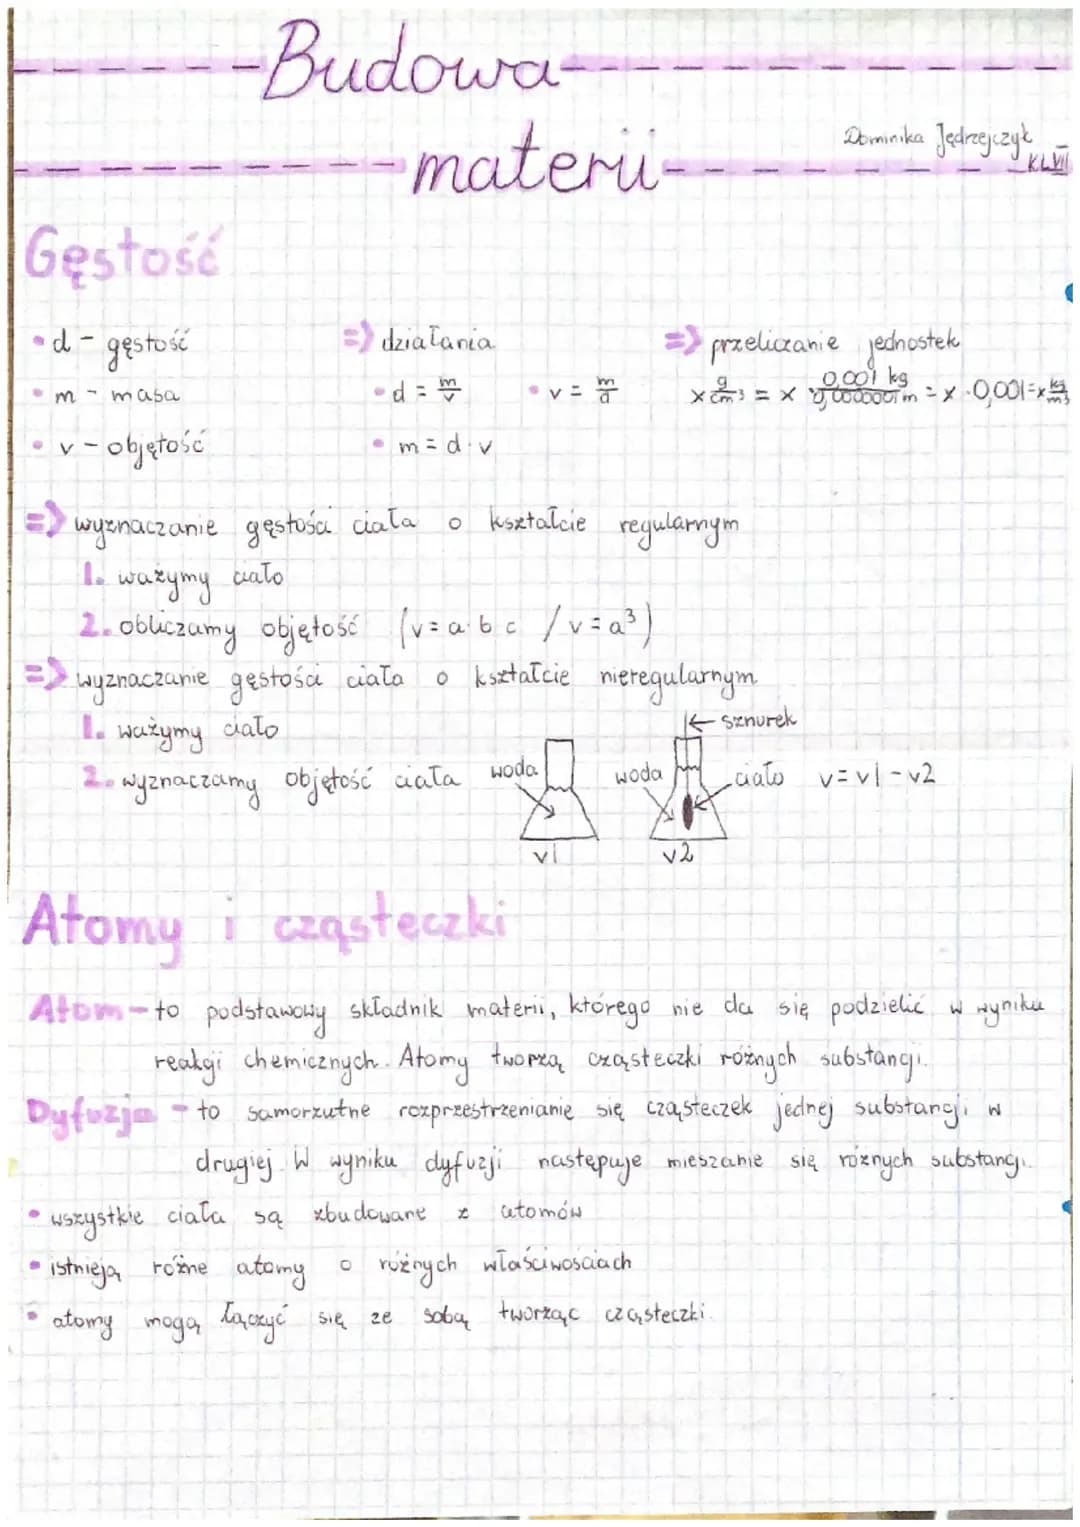 Budowa
materii
Dominika Jędrzejczyk
KL VII
Gęstość
• d - gęstość
• m - masa
• v - objętość
=> działania
• d = m/v • v = m/d
• m = d · v
=> przeliczanie jednostek
x g/cm³ = x 0,001 kg / 0,000001 m = x · 0,001 = x kg/m³
=> wyznaczanie gęstości ciała o kształcie regularnym
1. ważymy ciało
2. obliczamy objętość (v = a · b · c / v = a³)
=> wyznaczanie gęstości ciała o kształcie nieregularnym
1. ważymy ciało
2. wyznaczamy objętość ciała
woda
v1
sznurek
woda
ciało
v2
v = v1 - v2
Atomy i cząsteczki
Atom - to podstawowy składnik materii, którego nie da się podzielić w wyniku
reakcji chemicznych. Atomy tworzą cząsteczki różnych substancji.
Dyfuzja - to samorzutne rozprzestrzenianie się cząsteczek jednej substancji w
drugiej. W wyniku dyfuzji następuje mieszanie się różnych substancji.
• wszystkie ciała są zbudowane z atomów
• istnieją różne atomy o różnych właściwościach
• atomy mogą łączyć się ze sobą tworząc cząsteczki.